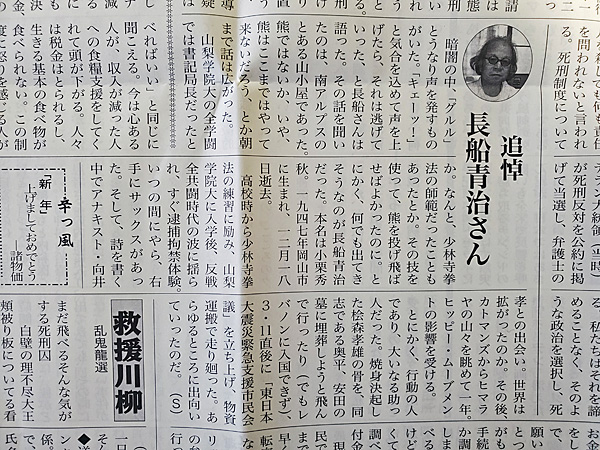 を殺しても何も責任
を問われないと言われ
る。死刑制度について
テラン大統領（当時）
が死刑反対を公約に掲
げて当選し、弁護士の
る、私たちはそれを諦
めることなく、そのよ
うな政治を選択し、死
追悼
長船青治さん
暗闇の中、「グルル」
とうなり声を発するもの
がいた。「キューッ！」
と気合を込めて声を上
げたら、それは逃げて
いった、と長船さんは
語った。その話を聞い
たのは、南アルプスの
とある山小屋であった。
熊ではないか、いや、
熊はここまではやって
来ないだろう、とか朝
まで話は広がった。
山梨学院大の全学闘
では書記局長だったと
か。なんと、少林寺拳
法の師範だったことも
あったとか。その技を
使って、熊を投げ飛ば
せばよかったのに。と
にかく、何でも出てき
そうなのが長船青治
だった。本名は小栗秀
秋。一九四七年岡山市
に生まれ、一二月一八
日逝去。
高校時から少林寺拳
法の練習に励み、山梨
学院大に入学後、反戦
全共闘時代の波に揺ら
れ、すぐ逮捕拘禁体験。
いつの間にやら、右
手にサックスがあっ
た。そして、詩を書く
中でアナキスト・向井
孝との出会い。世界は
拡がったのか。その後、
カトマンズからヒマラ
ヤの山々を眺めて一年。
ヒッピー・ムーブメン
トの影響を受ける。
とにかく、行動の人
であり、大いなる助っ
人だった。焼身決起し
た桧森孝雄の骨を、同
志である奥平、安田の
墓に埋葬しようと飛ん
で行ったり（でもレ
バノンに入国できず）、
3・11直後に「東日本
大震災緊急支援市民会
議」を立ち上げ、物資
運搬で走り廻った。あ
らゆるところに出向い
ていったのだ。（S）
べればいい」と同じに
聞こえる。今は心ある
人が、収入が減った人
への食糧支援をしてく
れて頭が下がる。人々
は税金はとられるし、
生きる基本の食べ物が
食べられない。この制
度に怒りを感じる人が
辛っ風
「新年」
上げましておめでとう
──諸物価
救援川柳
乱鬼龍選
まだ飛べるそんな気が
する死刑囚
白壁の理不尽大王
頬被り板についてる看